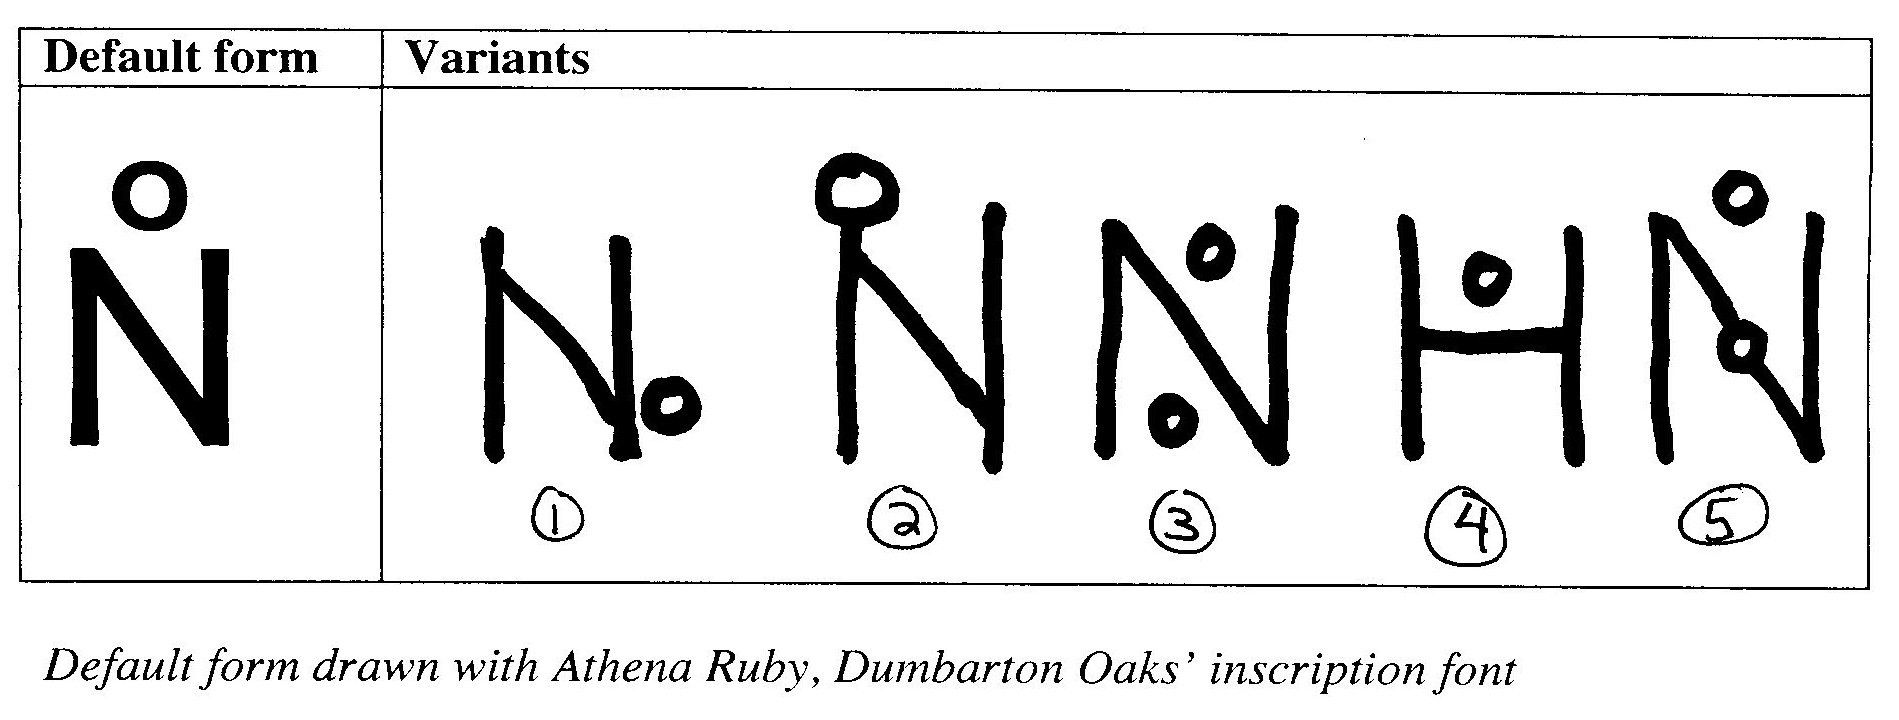 Default form Variants
N̊
① ② ③ ④ ⑤
Default form drawn with Athena Ruby, Dumbarton Oaks’ inscription font